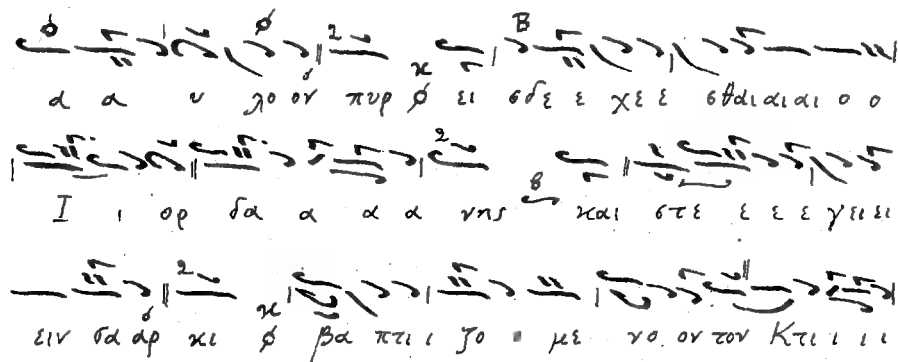 α α υ λο ον πυρ ει σδε ε χε ε σθαι αι αι ο ο
Ι ι ορ δα α α α νης και στε ε ε ε γει ει
ειν σα αρ κι βα πτι ι ζο ο με νο ον τον Κτι ι ι ι